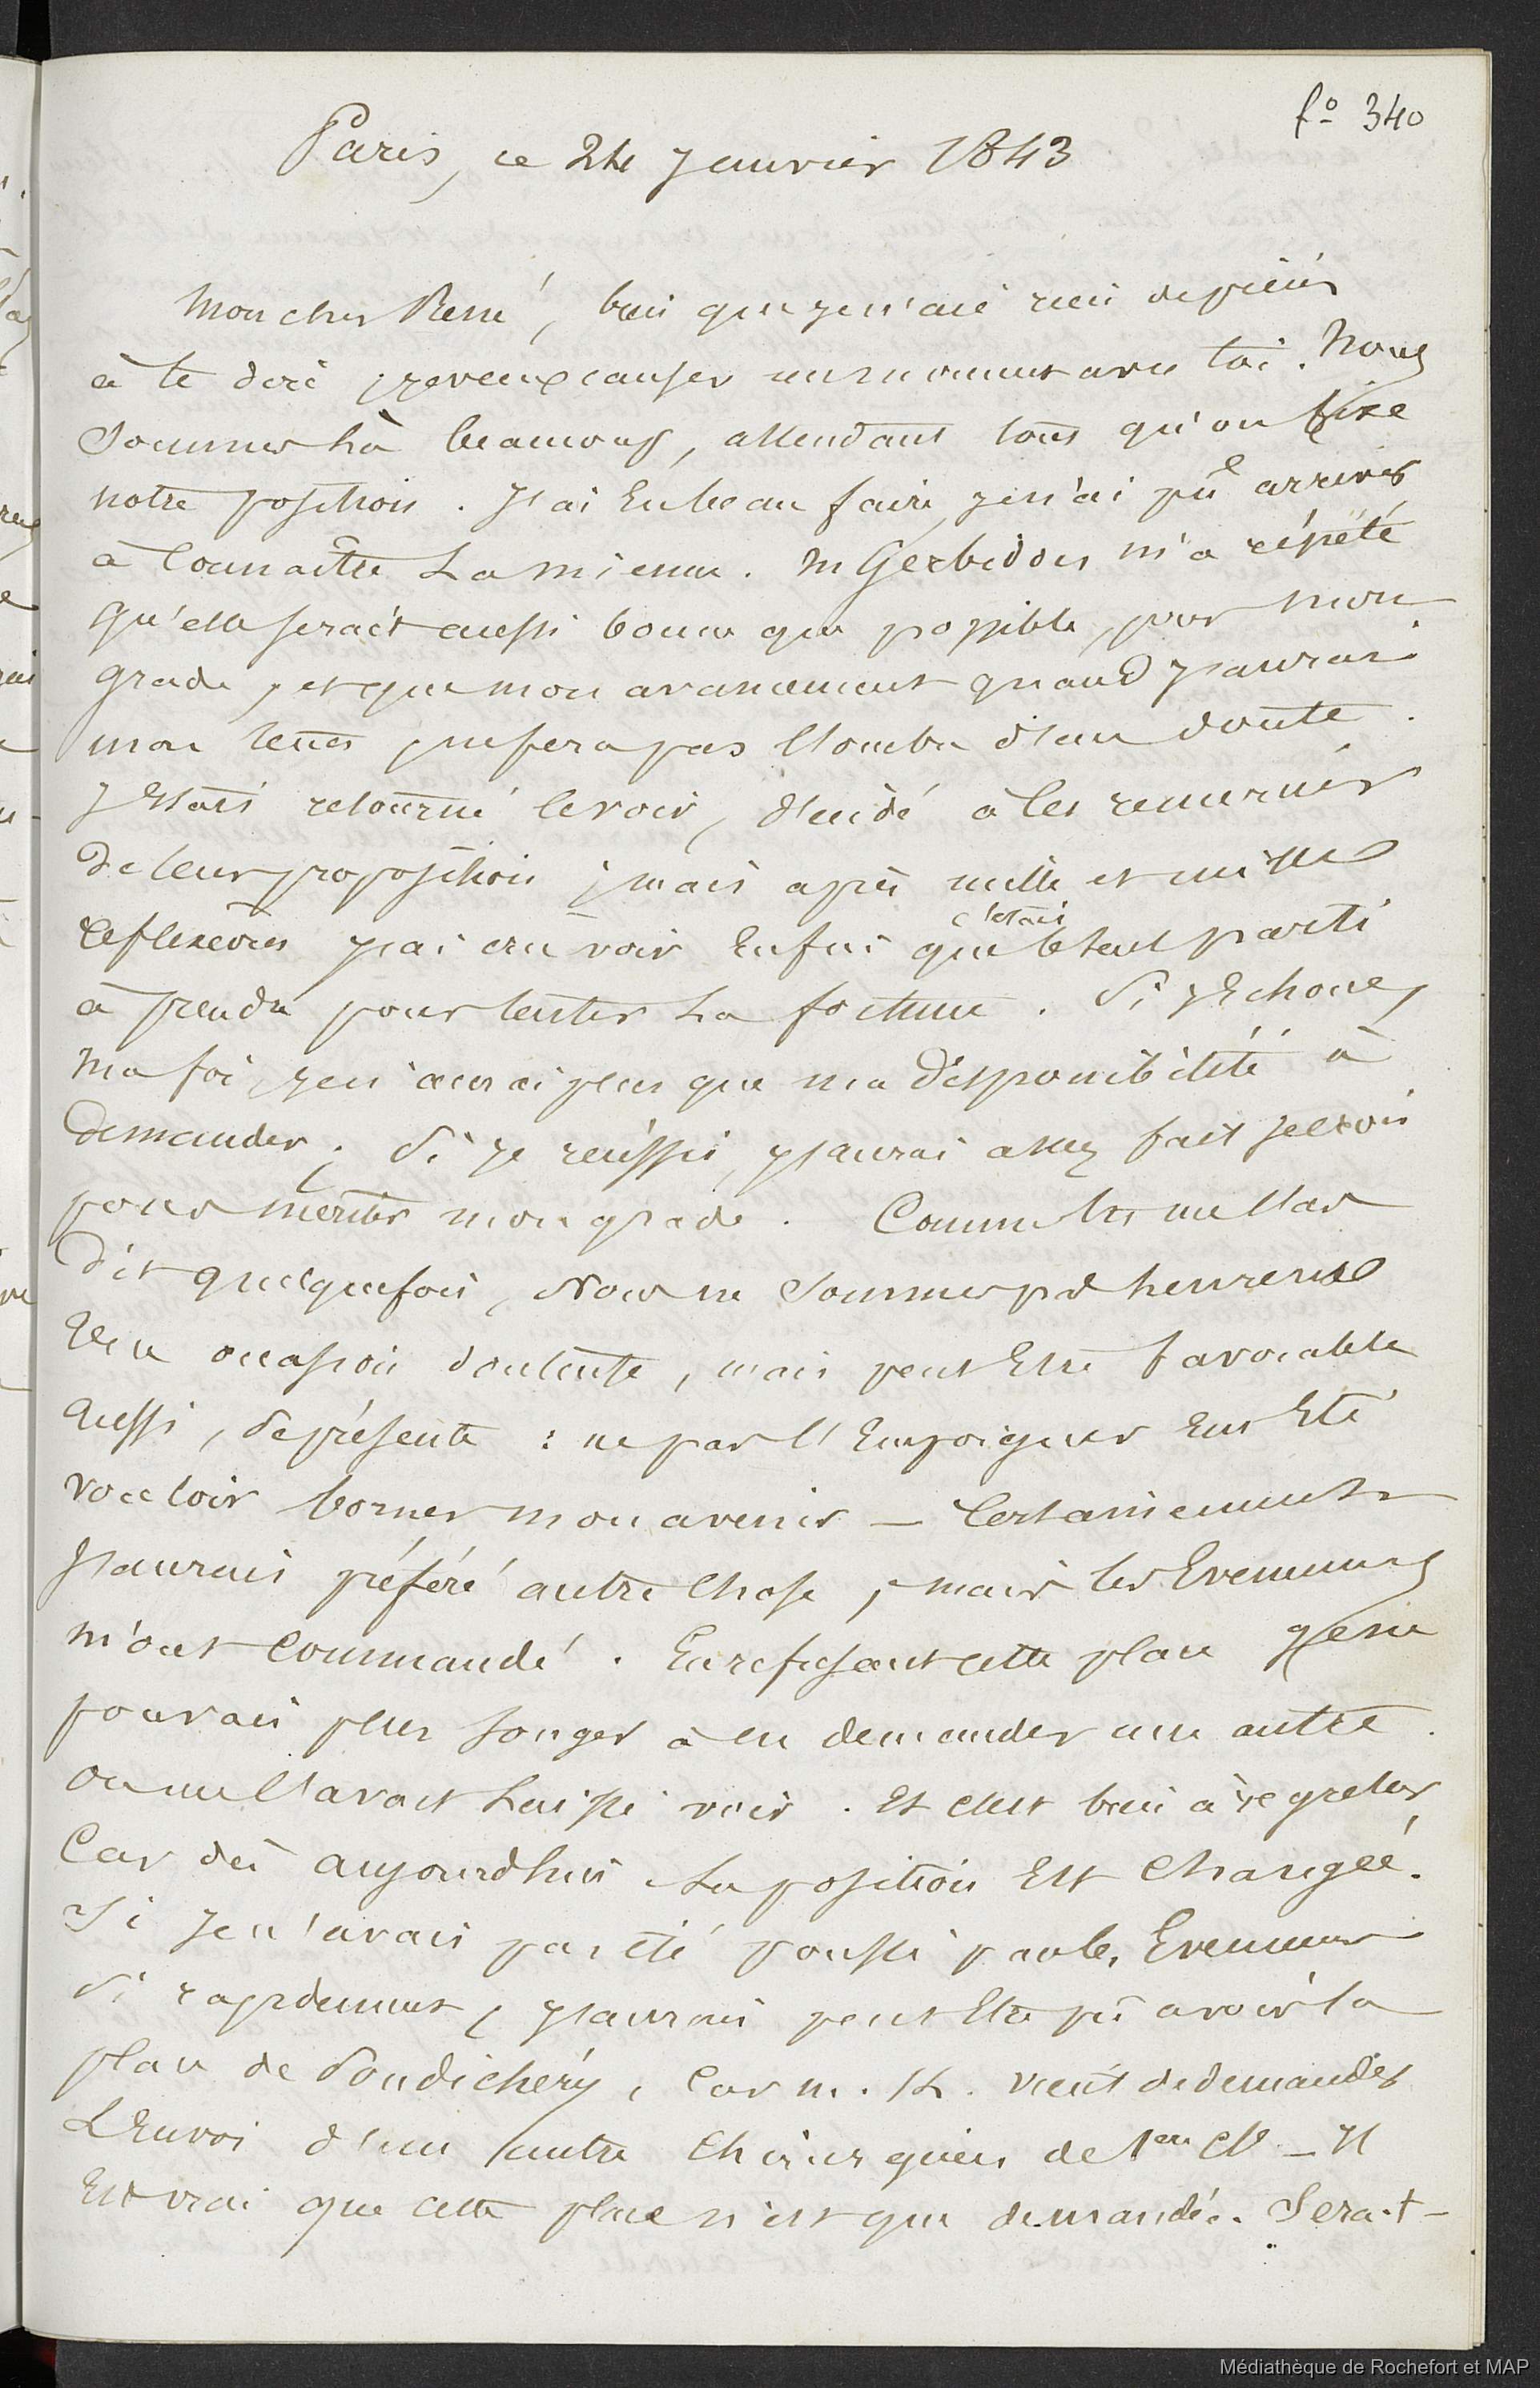 f° 340
Paris, ce 24 Janvier 1843
Mon cher René, bien que je n'aie rien de précis
à te dire je veux causer un moment avec toi. Nous
sommes là beaucoup, attendant tous qu'on fixe
notre position. J'ai eu beau faire, je n'ai pu arriver
à connaître la mienne. M Gerbidon m'a répété
qu'elle serait aussi bonne que possible, pour mon
grade, et que mon avancement quand j'aurai
mon tems, ne fera pas l'ombre d'un doute.
J'étais retourné le voir, décidé à les remercier
de leur proposition ; mais après mille et mille
réflexions j'ai cru voir enfin que c'était le seul parti
à prendre pour tenter la fortune. Si j'échoue,
ma foi, je n'aurai plus que ma disponibilité à
demander ; si je réussis, j'aurai assez fait je crois
pour mériter mon grade. Comme tu me l'as
dit quelquefois, nous ne sommes pas heureux
Une occasion douteuse, mais peut être favorable
aussi, se présente : ne pas l'empoigner eut été
vouloir borner mon avenir — Certainement
j'aurais préféré autre chose, mais les évenemens
m'ont commandé. En refusant cette place je ne
pouvais plus songer à en demander une autre.
On me l'avait laissé voir. Et c'est bien à regretter
car dès aujourd'hui la position est changée.
Si je n'avais pas été poussé par les évenemens
si rapidement, j'aurais peut être pû avoir la
place de Pondichéry, car m. K. vient de demander
l'envoi d'un autre chirurgien de 1ere cl. — Il
est vrai que cette place n'est que demandée. Serait-
Médiathèque de Rochefort et MAP